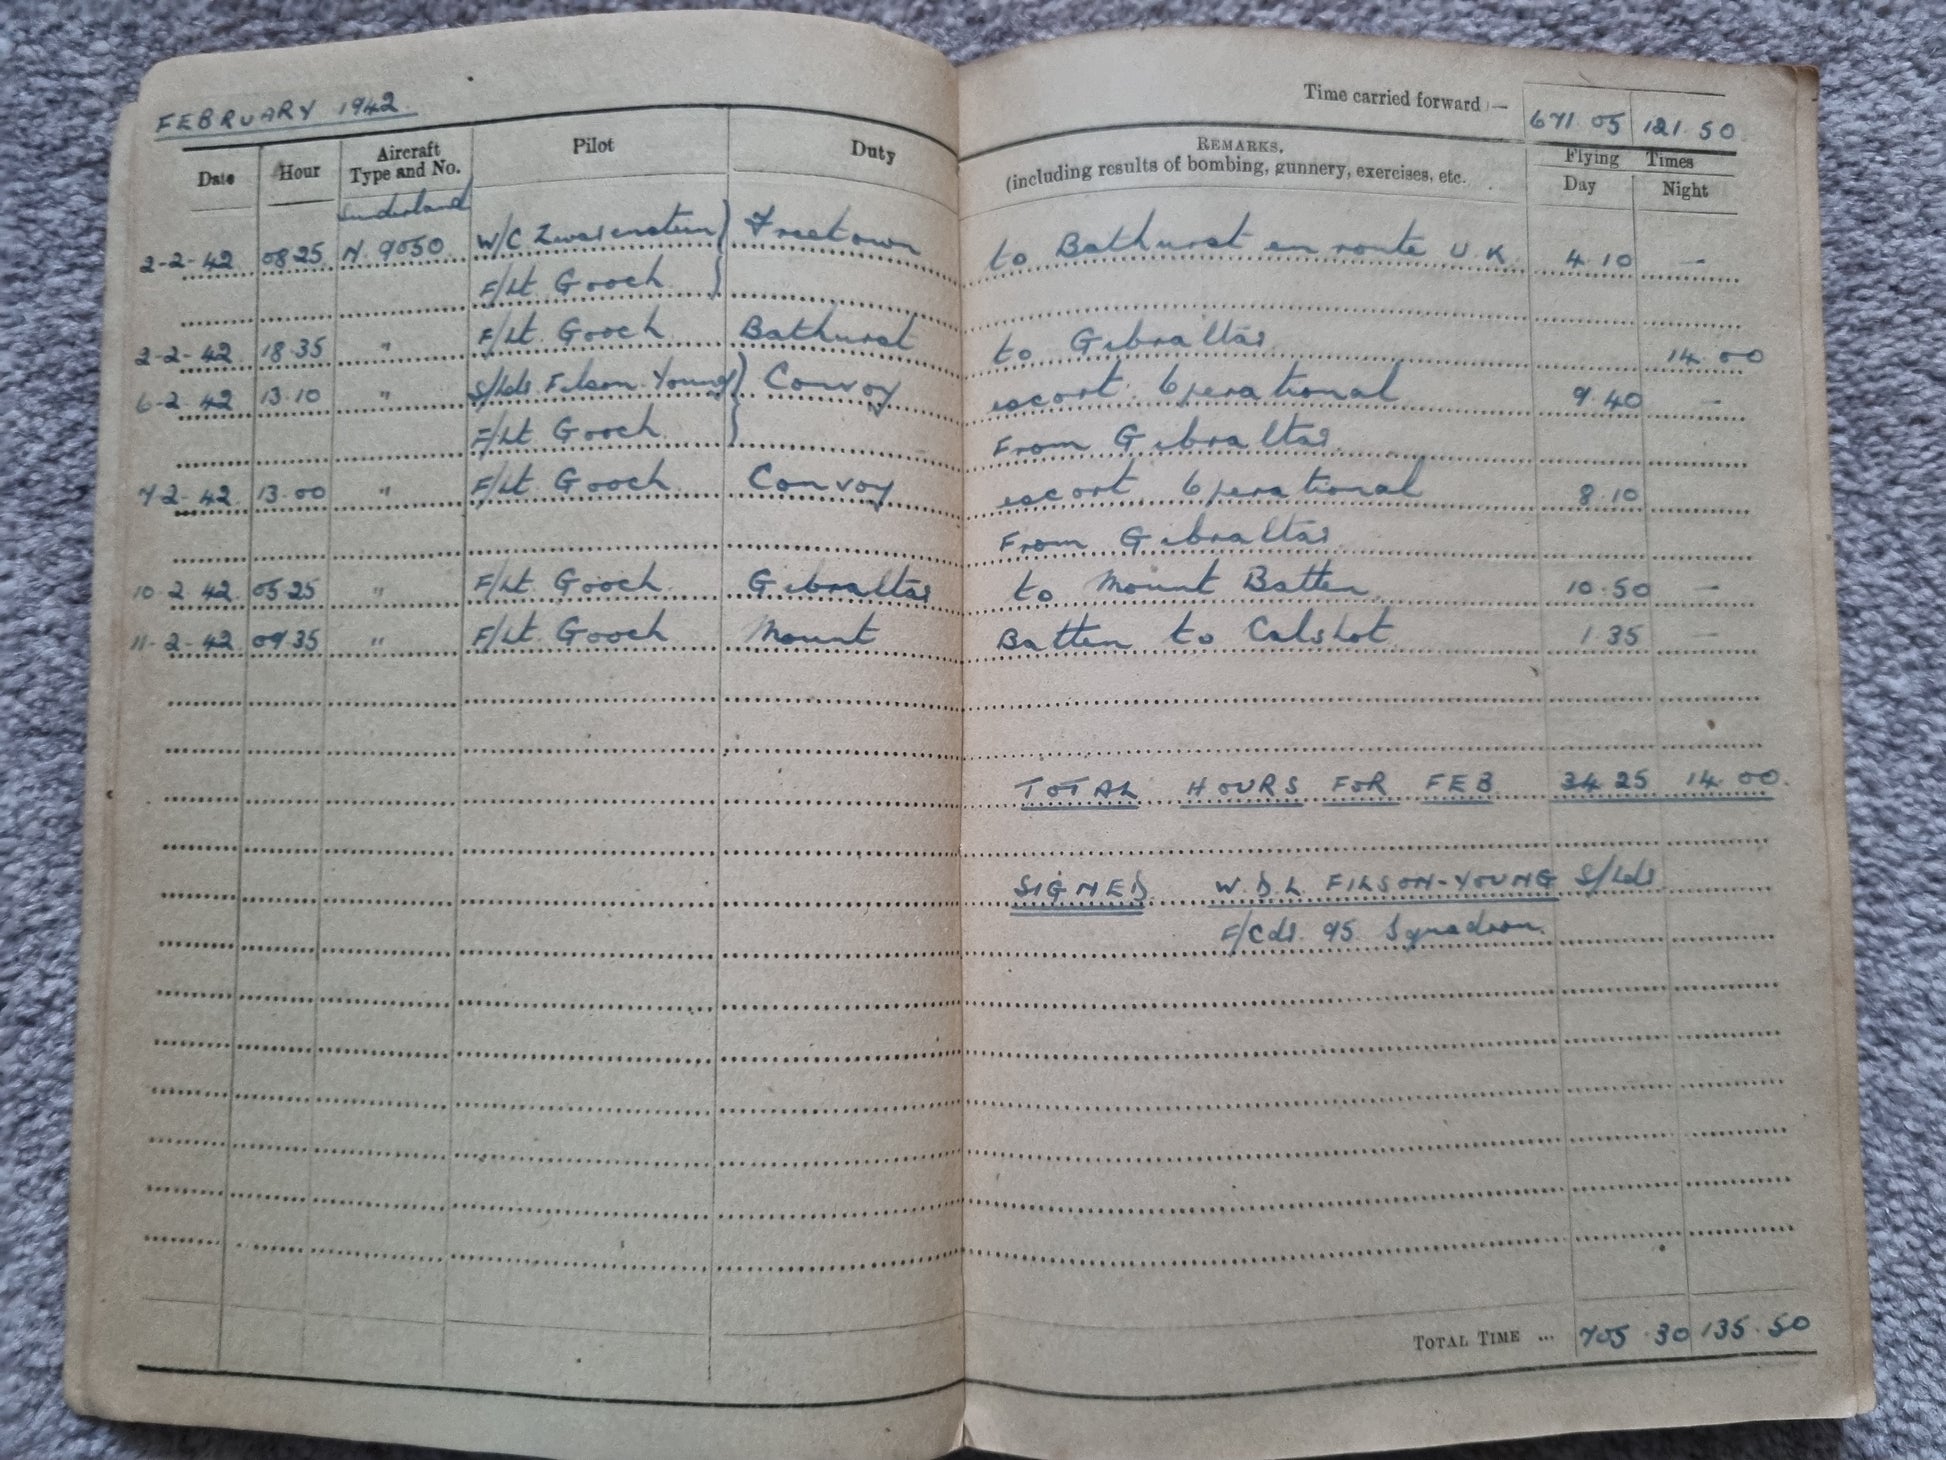 FEBRUARY 1942.
Time carried forward :— 671.05 121.50
Date Hour Aircraft Type and No. Pilot Duty REMARKS. (including results of bombing, gunnery, exercises, etc. Flying Times Day Night
Sunderland
2-2-42 08.25 N. 9050 W/C Freetown to Bathurst en route U.K. 4.10 —
F/Lt. Gooch
2-2-42 18.35 " F/Lt. Gooch Bathurst to Gibraltar 14.00
6-2-42 13.10 " S/Ldr. Filson-Young Convoy escort. Operational 9.40 —
F/Lt. Gooch From Gibraltar.
7-2-42 13.00 " F/Lt. Gooch Convoy escort. Operational 8.10
From Gibraltar.
10-2-42 05.25 " F/Lt. Gooch Gibraltar to Mount Batten. 10.50 —
11-2-42 09.35 " F/Lt. Gooch Mount Batten to Calshot. 1.35 —
TOTAL HOURS FOR FEB 34.25 14.00.
SIGNED. W.D.L. FILSON-YOUNG S/Ldr.
F/Cdr. 95 Squadron.
TOTAL TIME ... 705.30 135.50